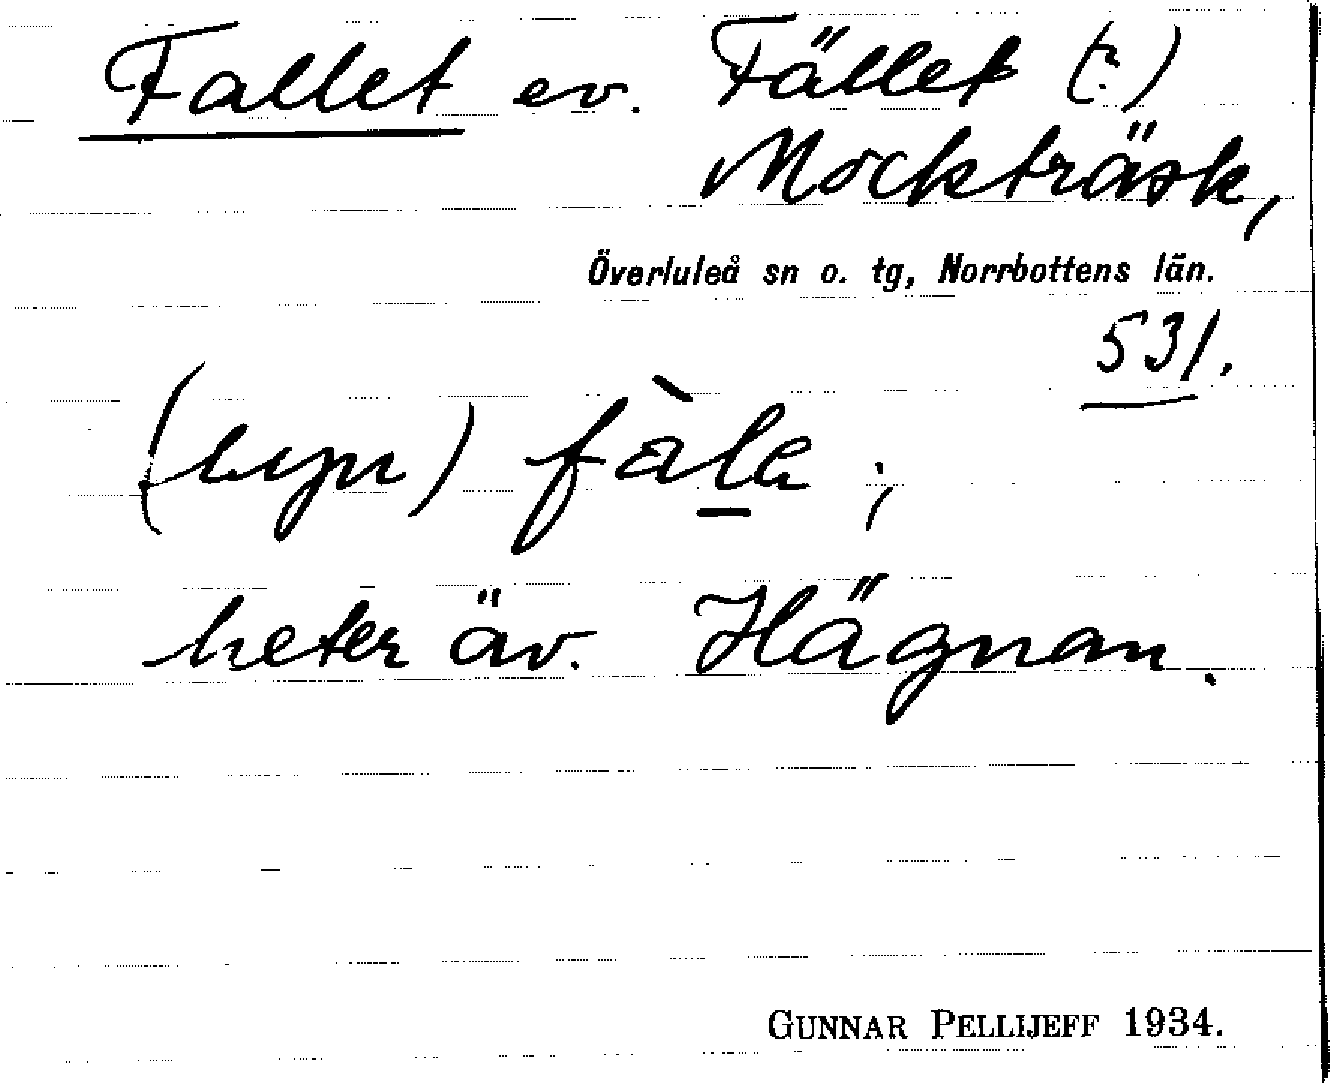 Fallet ev. Fället (?)
Mockträsk,
Överluleå sn o. tg, Norrbottens län.
531.
fàla ;
heter äv. Hägnan.
GUNNAR PELLIJEFF 1934.